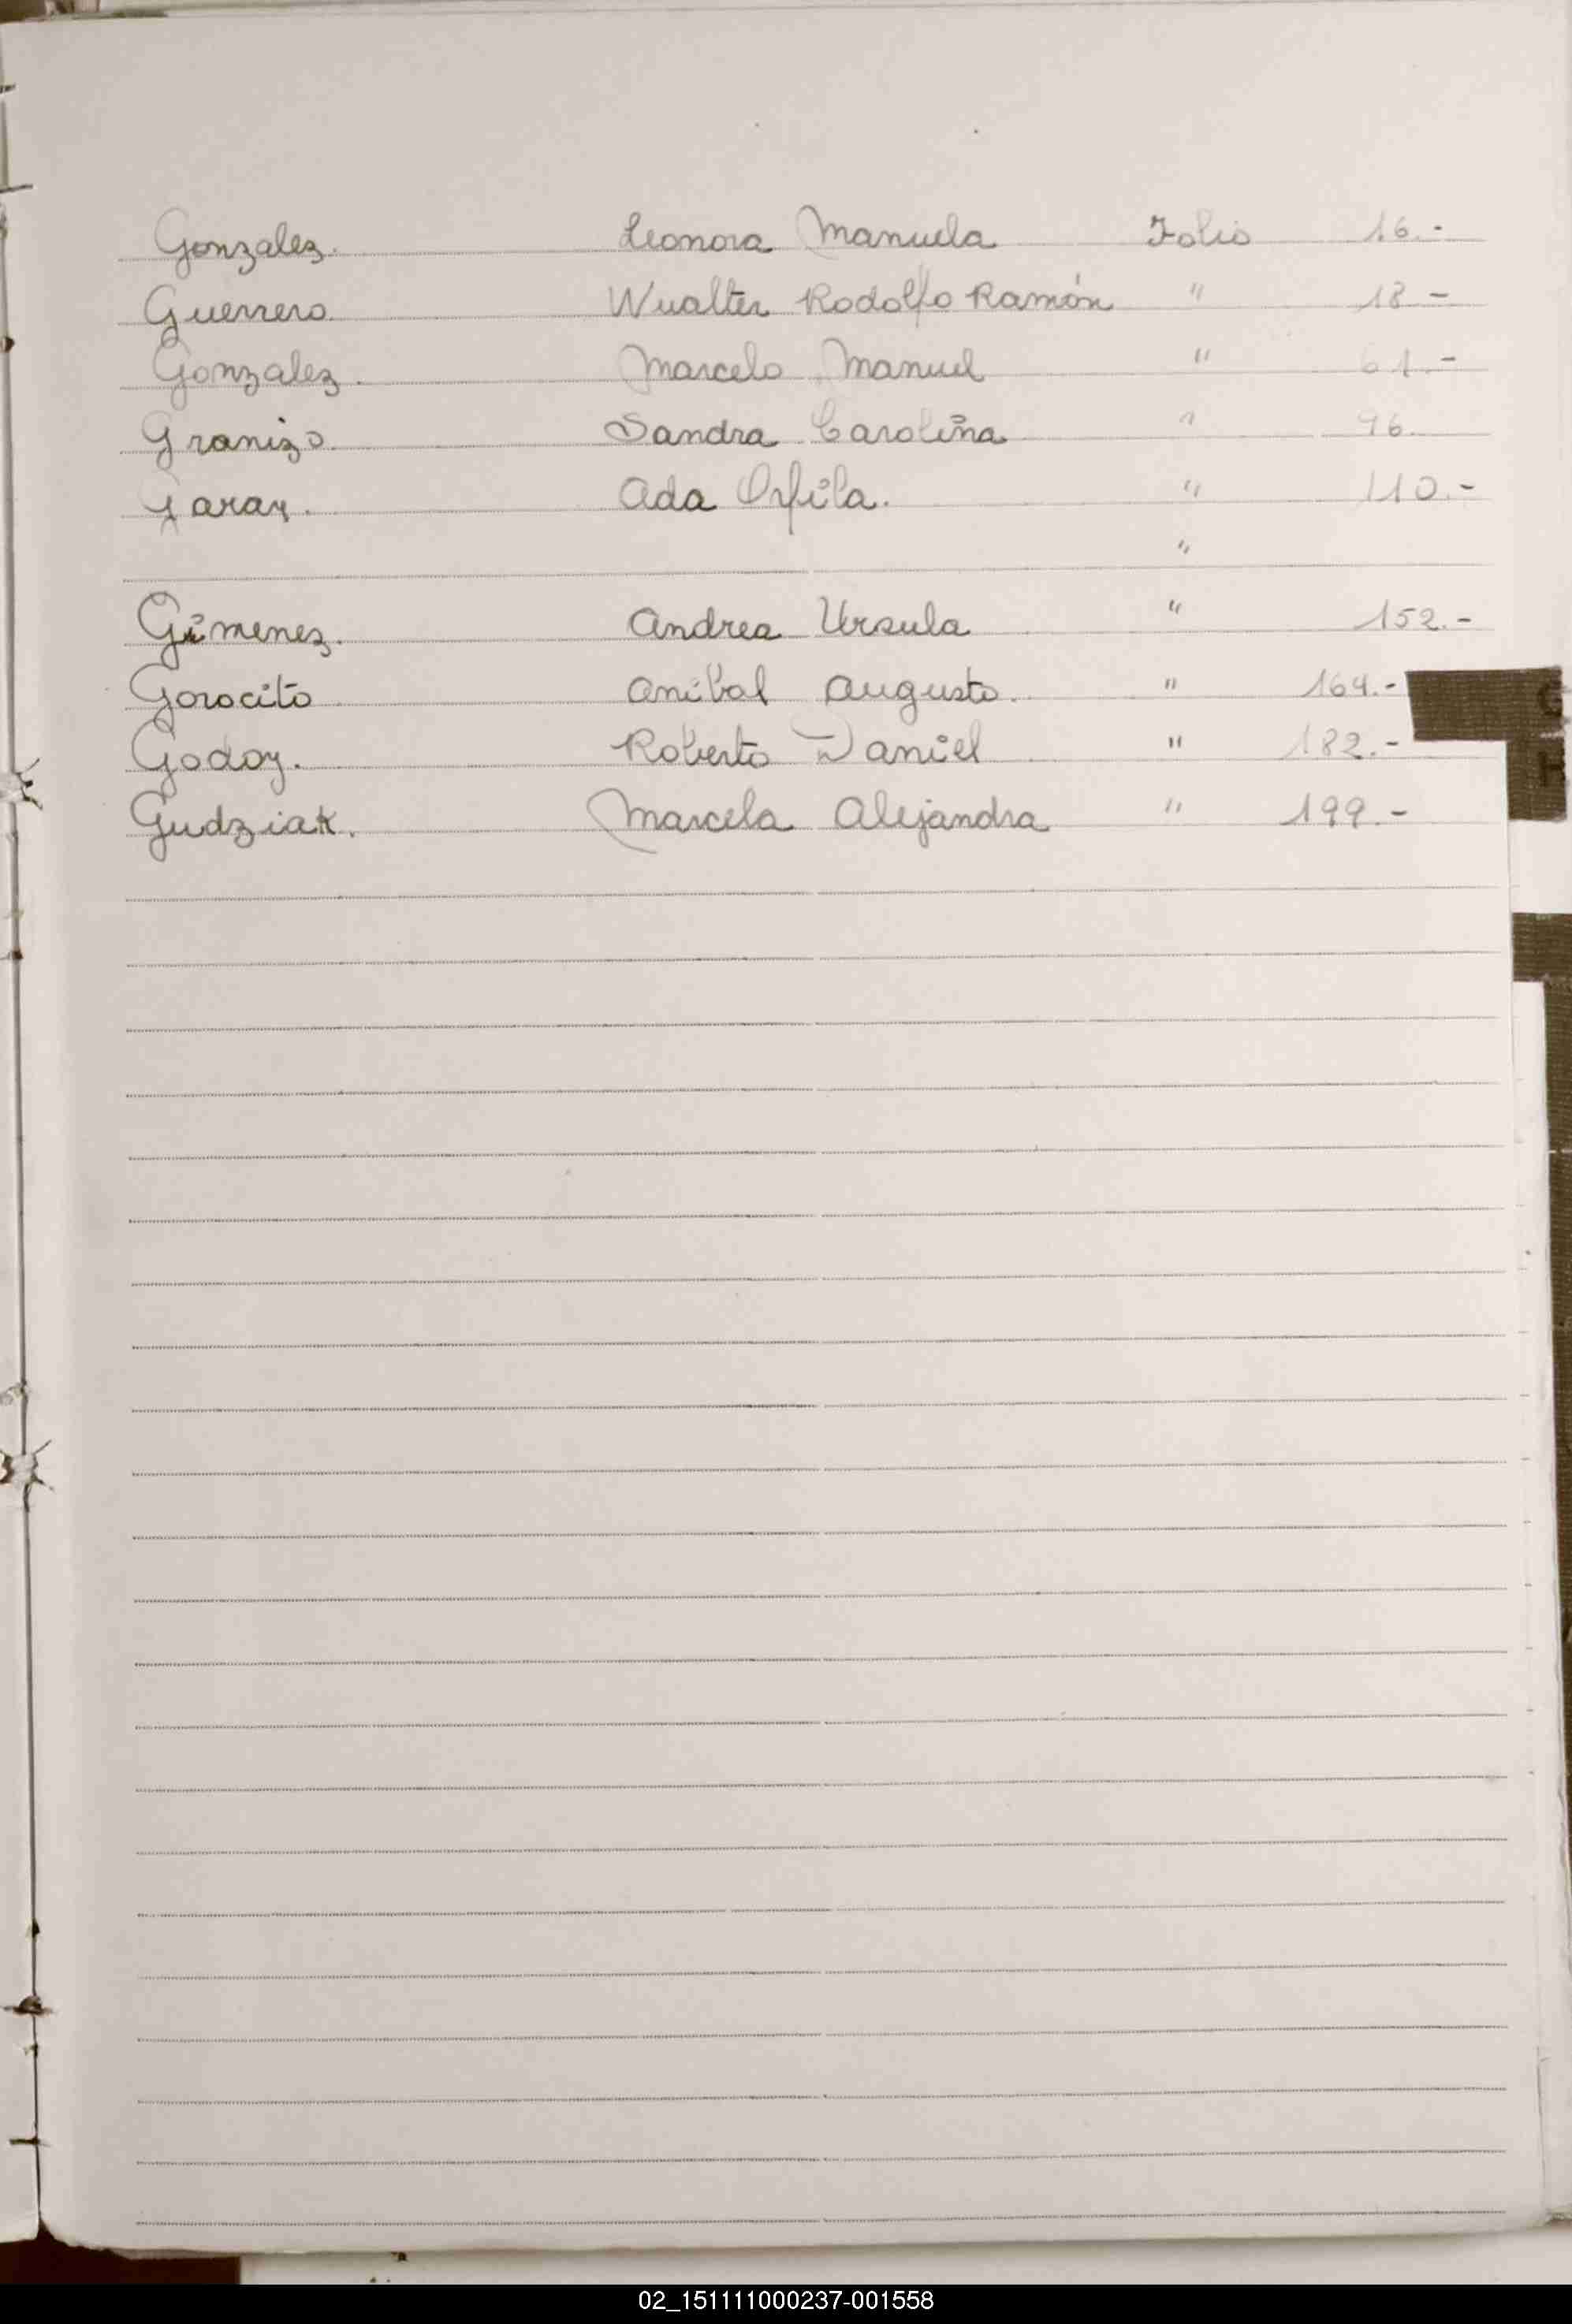 Gonzalez. Leonora Manuela Folio 16.-
Guerrero. Wualter Rodolfo Ramón " 18-
Gonzalez. Marcelo Manuel " 61.-
Granizo. Sandra Carolina " 96.
Garay. Ada Orfila. " 110.-
"
Gimenez. Andrea Ursula " 152.-
Gorocito Anibal Augusto. " 164.-
Godoy. Roberto Daniel " 182.-
Gudziak. Marcela Alejandra " 199.-
G
H
02_151111000237-001558